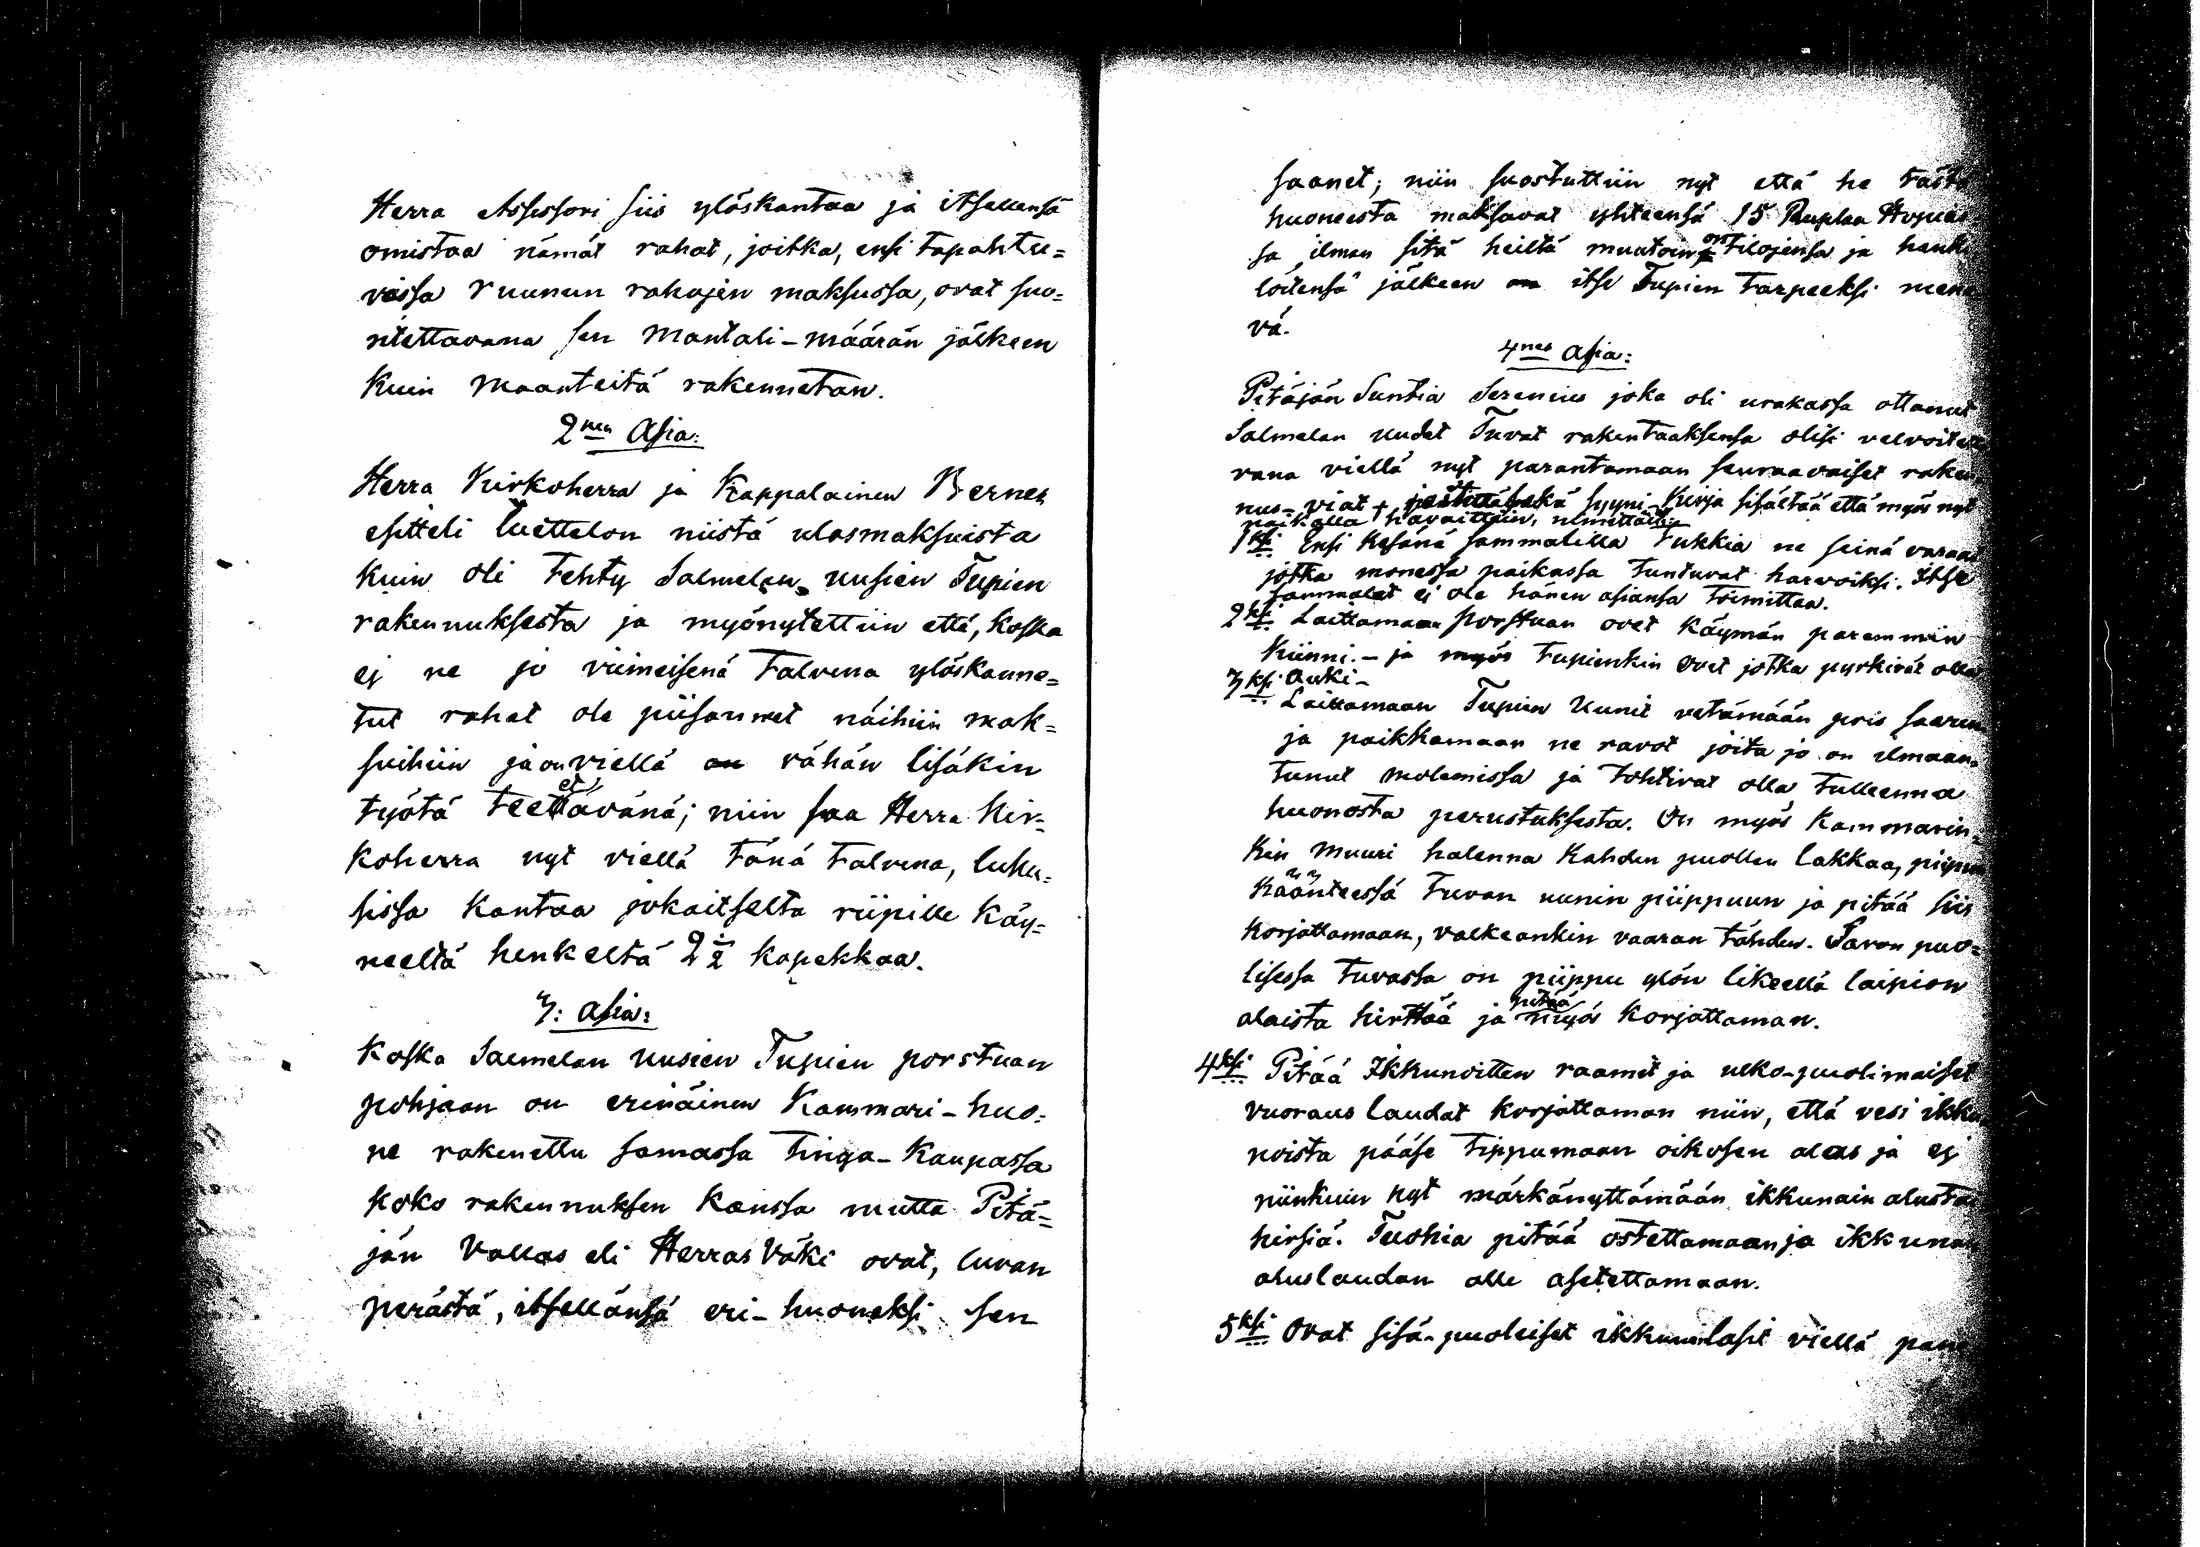 Herra Assessori siis ylöskantaa ja itsellensä
omistaa nämät rahat, joitka, ensi tapahtu=
vassa ruunun rahajen maksussa, ovat suo=
ritettavana sen Mantali-määrän jälkeen
kuin maanteitä rakennetan.
2nen Asia:
Herra Kirkoherra ja Kappalainen Berner
esitteli luettelon niistä ulosmaksuista
kuin oli tehty Salmelan uusien Tupien
rakennuksesta ja myönytettiin että, koska
ej ne jo viimeisenä talvena ylöskanne=
tut rahat ole piisannet näihiin mak=
suihiin ja on viellä vähän lisäkin
työtä teetettävänä; niin saa Herra Kir=
koherra nyt viellä tänä talvena, luku=
sissa kantaa jokaitselta riipille käy=
neeltä henkeltä 2½ kopekkaa.
3: Asia:
Koska Salmelan Uusien Tupien porstuan
pohjaan on erinäinen Kammari-huo=
ne rakenettu samassa tinga-kaupassa
koko rakennuksen kanssa mutta Pitä=
jän Vallas eli Herras Väki ovat, luvan
perästä, itsellänsä eri-huoneksi sen
saanet; niin suostuttiin nyt että he tästä
huoneesta maksavat yhteensä 15 Ruplaa Hopias
sa ilman sitä heiltä muutoin on tilojensa ja henki
löitensä jälkeen itse Tupien tarpeeksi mene
vä.
4nes Asia:
Pitäjän Suntia Serenius joka oli urakassa ottanut
Salmelan uudet Tuvat rakentaaksensa olisi velvoitet
vana viellä nyt parantamaan seuraavaiset raken
nus-viat + syyni-Kirja sisältää että myös nyt
paikalla havaittiin, nimittäin
1ksi Ensi kesänä sammalilla tukkia ne seinä varaat
jotka monessa paikassa tuntuvat harvoiksi. Itse
sammalet ej ole hänen asiansa toimittaa.
2ksi Laittamaan porstuan ovet käymän paremmin
kiinni. - ja myös tupienkin ovet jotka pyrkivät olla
auki-
3ksi Laittamaan Tupien Uunit vetämään pois saaren
ja paikkamaan ne ravot joita jo on ilmaan=
tunut molemissa ja tohtivat olla tulleenna
huonosta perustuksesta. On myös kammarin=
kin muuri halenna kahden puollen lakkaa, piipun
käänteessä tuvan uunin piippuun ja pitää siis
korjattamaan, valkeankin vaaran tähden. Savon puo=
lisessa tuvassa on piippu ylön likeellä laipion
alaista hirttää ja pitää myös korjattaman.
4ksi Pitää Ikkunoitten raamit ja ulko-puolimaiset
vuoraus laudat korjattaman niin, että vesi ikku
noista pääse tippumaan oikosen alas ja ej
niinkuin nyt märkänyttämään ikkunain alusta
hirsiä. Tuohia pitää ostettamaan ja ikkunan
aluslaudan alle asetettamaan.
5ksi Ovat sisä-puoleiset ikkunilasit viellä pane